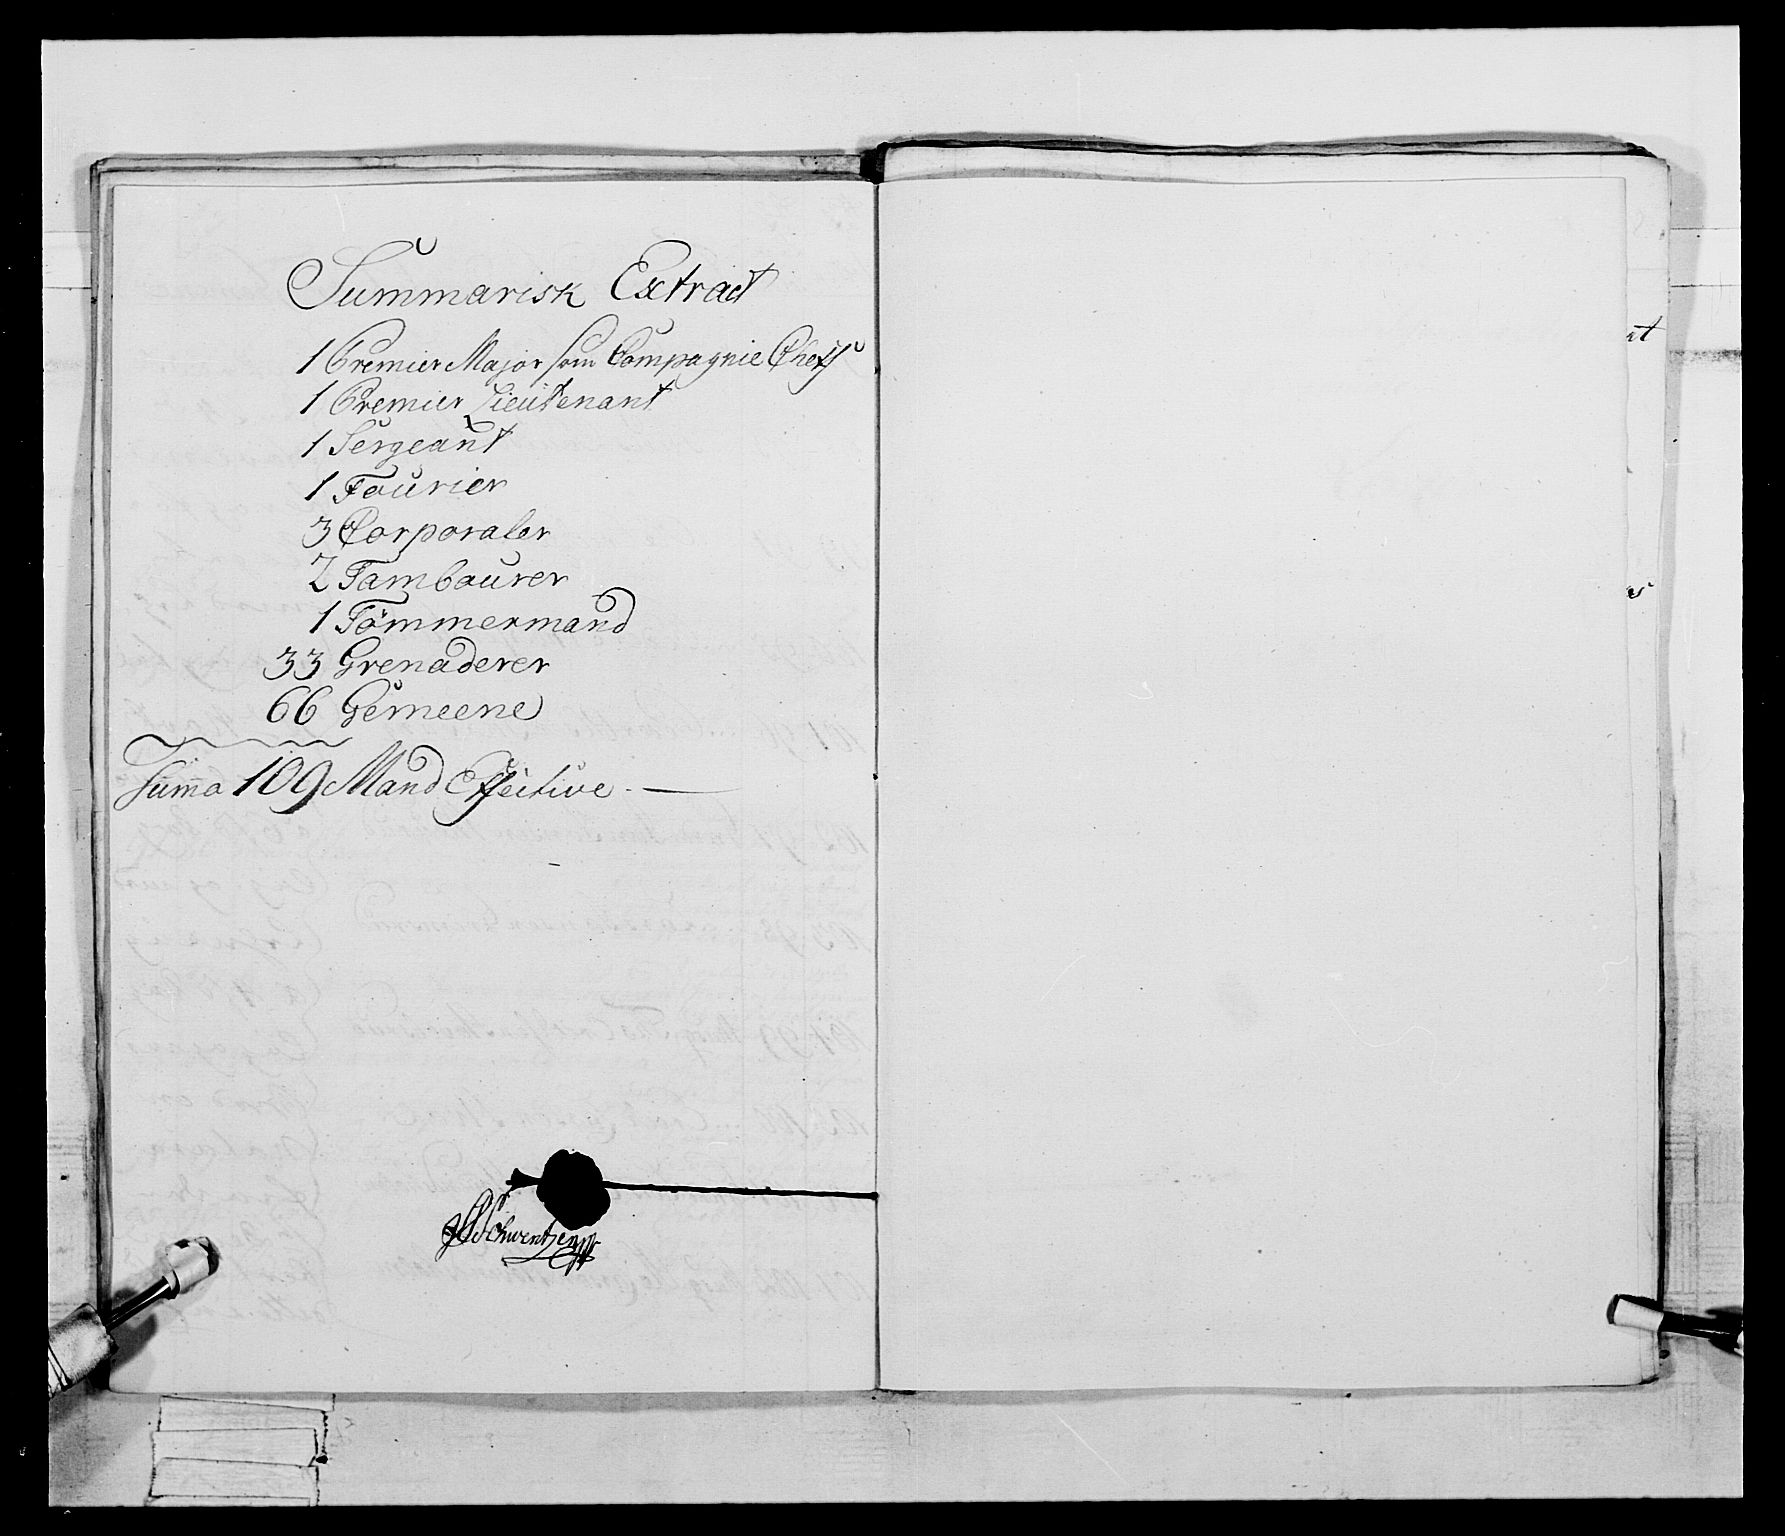 Summarisk Extract
1 Premier Major som Compagnie Cheff
1 Premier Lieutenant
1 Sergeant
1 Fourier
3 Corporaler
2 Tambourer
1 Tömmermand
33 Grenaderer
66 Gemeene
Suma 109 Mand Effective.
Schwentzen